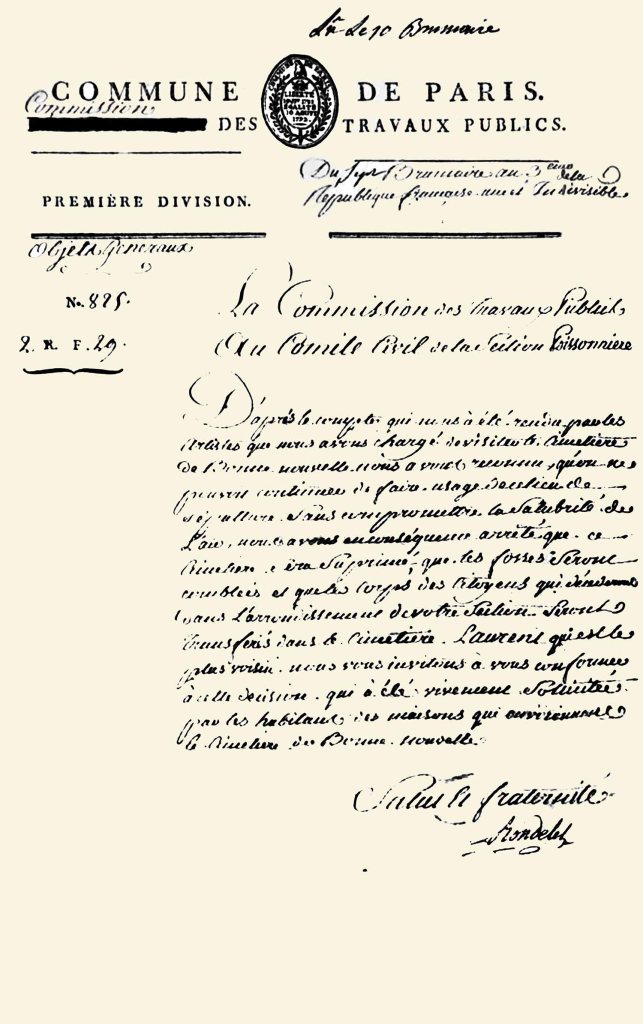 Le 10 Brumaire
COMMUNE DE PARIS.
COMMUNE DE PARIS
LIBERTÉ
ÉGALITÉ
10 AOUST
1792.
Commission
DES TRAVAUX PUBLICS.
Du sept Brumaire an 3eme de la
République française une et Indivisible
PREMIÈRE DIVISION.
Objets Generaux
No. 825.
2. R. F. 29.
La Commission des Travaux Publics
Au Comité Civil de la Section Poissonniere
D'après le compte qui nous à été rendu par les
Artistes que nous avons chargé de visiter le Cimetiere
de Bonne nouvelle nous avons reconnu, qu'on ne
pouvoit continuer de faire usage de ce lieu de
sépulture sans compromettre la Salubrité de
L'air, nous avons en conséquence arrêté que ce
Cimetiere sera Suprimé, que les fosses Seront
comblées et que les Corps des Citoyens qui décederont
dans L'arrondissement de votre Section Seront
transférés dans le Cimetiere Laurent qui est le
plus voisin. nous vous invitons à vous conformer
à cette decision. qui à été vivement Sollicitée
par les habitans des maisons qui environnent
le Cimetiere de Bonne nouvelle
Salut et fraternité
Rondelet